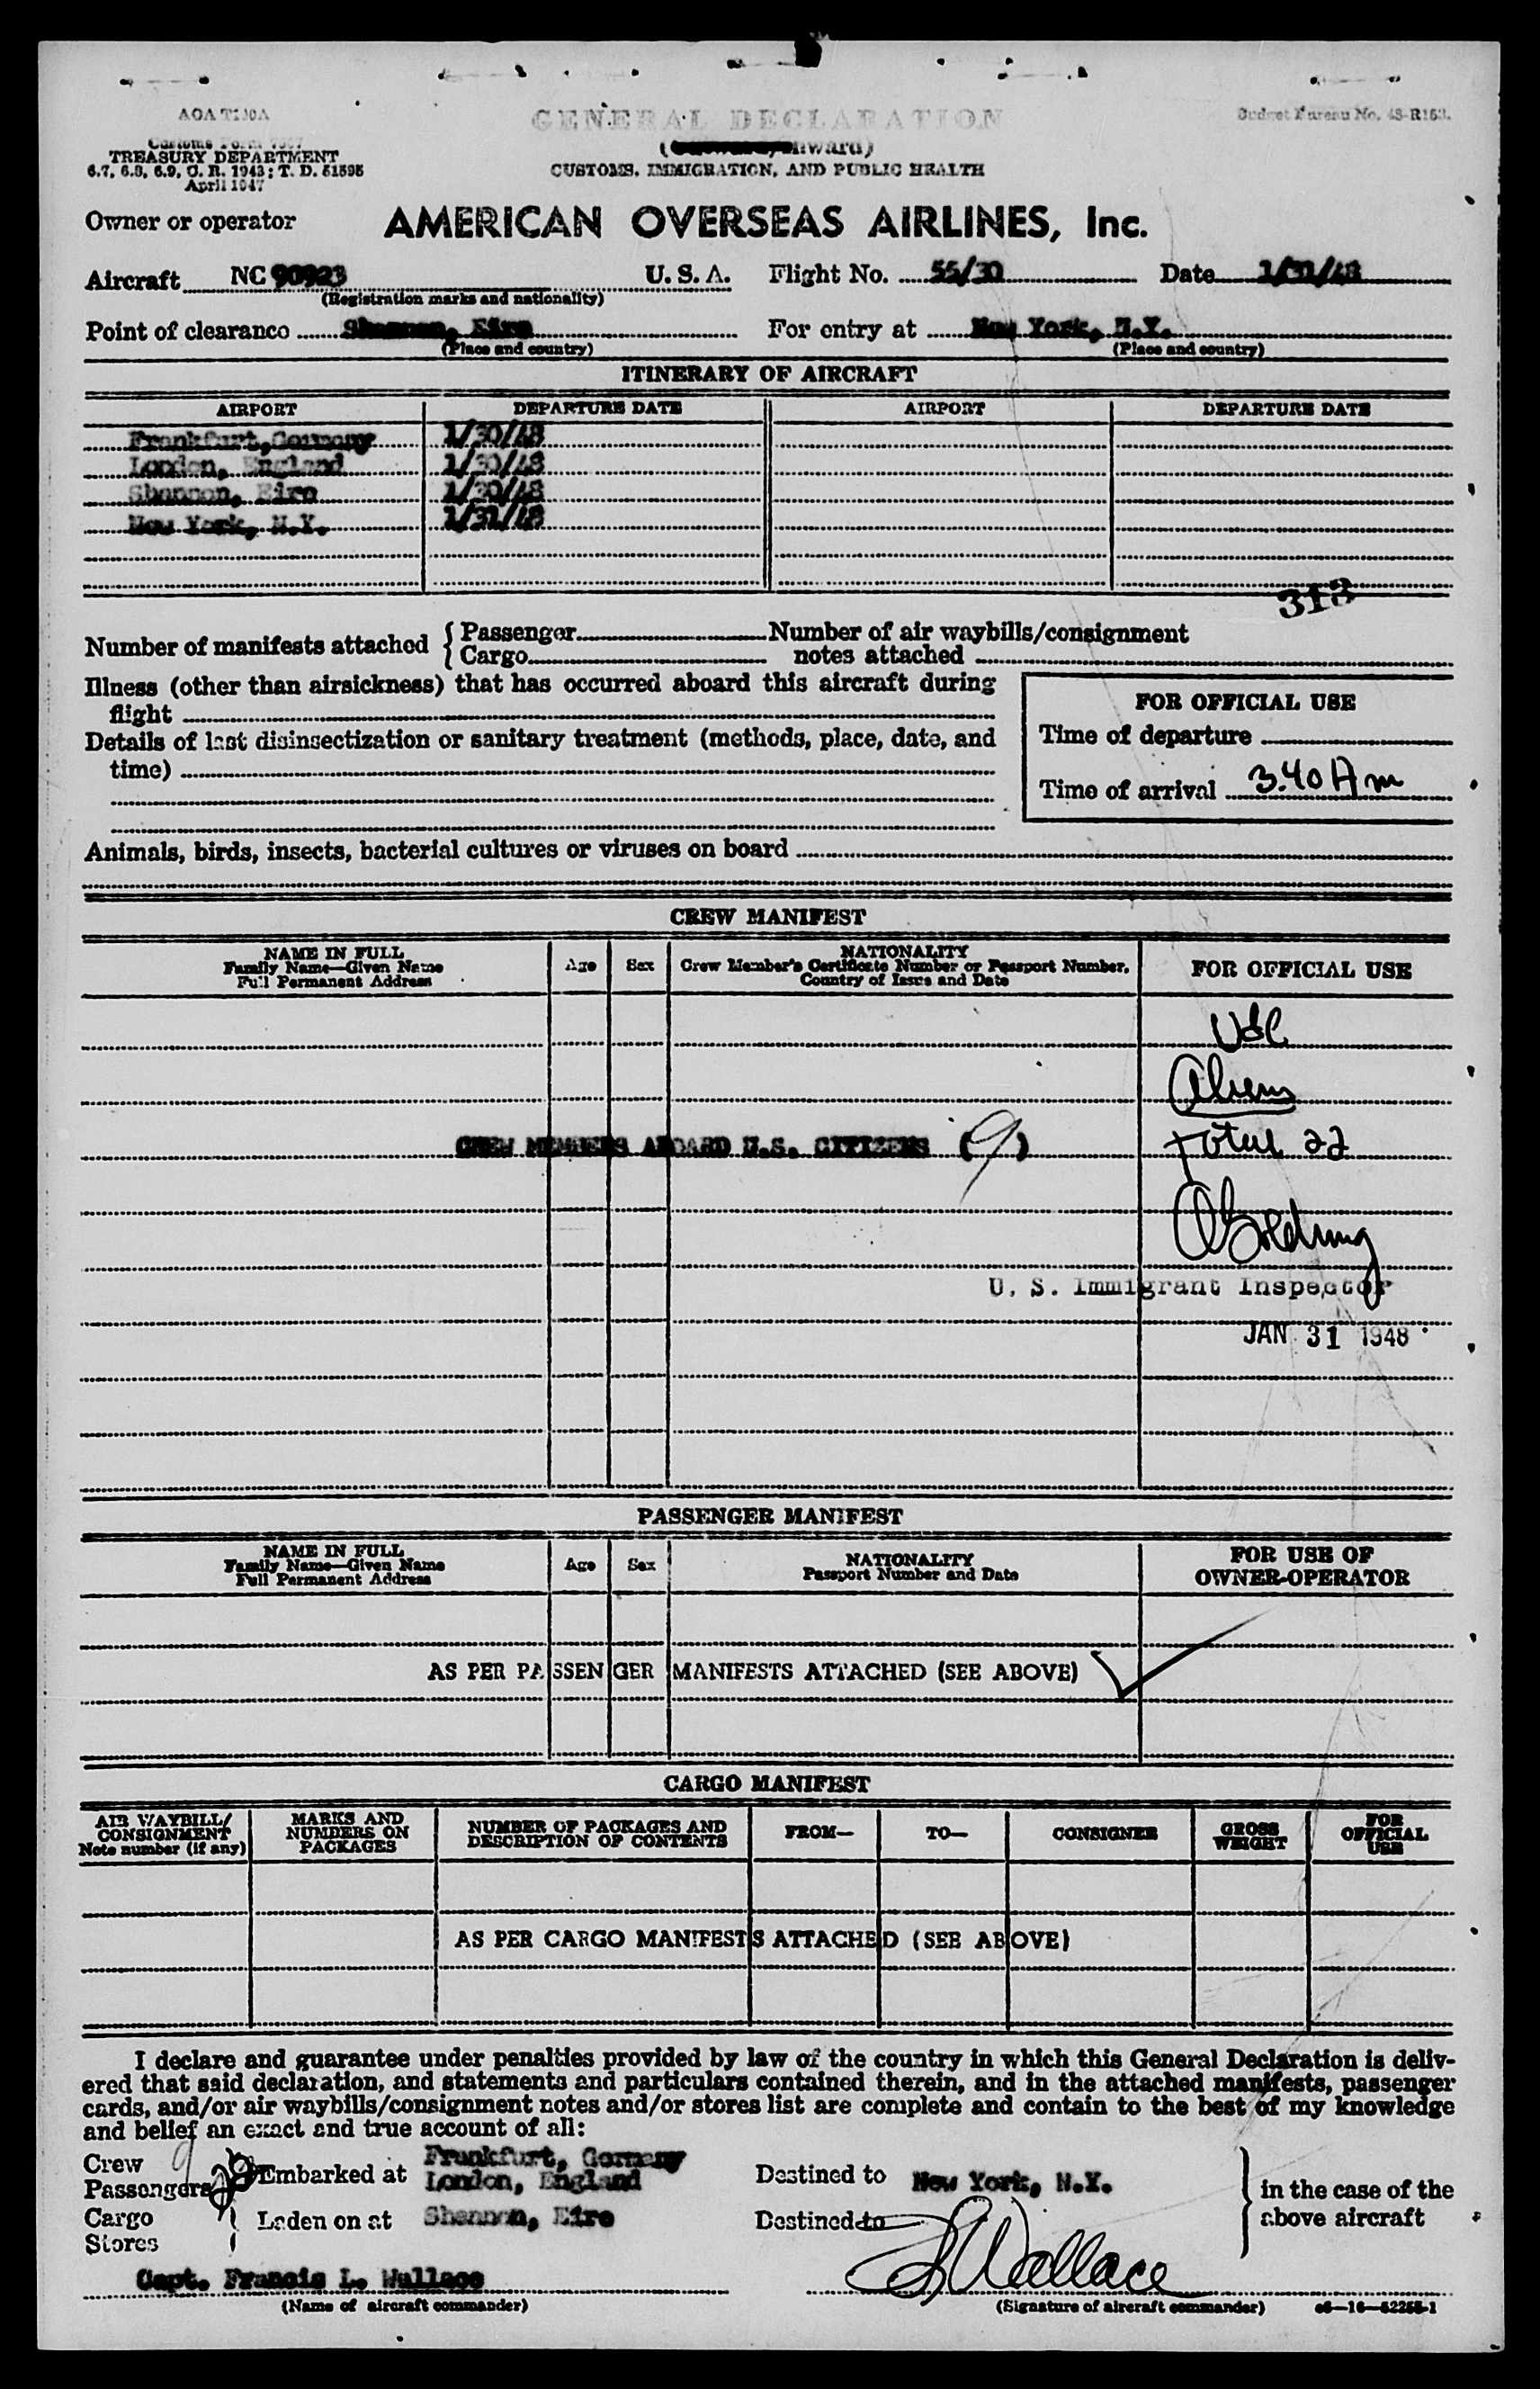 AOA T100A
GENERAL DECLARATION
Budget Bureau No. 48-R153.
Customs Form 7507
TREASURY DEPARTMENT
6.7, 6.8, 6.9, C. R. 1943; T. D. 51595
April 1947
CUSTOMS, IMMIGRATION, AND PUBLIC HEALTH
Owner or operator AMERICAN OVERSEAS AIRLINES, Inc.
Aircraft NC 90923 U. S. A. Flight No. 55/30 Date 1/31/48
(Registration marks and nationality)
Point of clearance Shannon, Eire For entry at New York, N.Y.
(Place and country) (Place and country)
ITINERARY OF AIRCRAFT
AIRPORT DEPARTURE DATE AIRPORT DEPARTURE DATE
Frankfurt, Germany 1/30/48
London, England 1/30/48
Shannon, Eire 1/30/48
New York, N.Y. 1/31/48
313
Number of manifests attached { Passenger Number of air waybills/consignment
Cargo notes attached
Illness (other than airsickness) that has occurred aboard this aircraft during
flight
FOR OFFICIAL USE
Details of last disinsectization or sanitary treatment (methods, place, date, and
time)
Time of departure
Time of arrival 3.40 A m
Animals, birds, insects, bacterial cultures or viruses on board
CREW MANIFEST
NAME IN FULL
Family Name—Given Name
Full Permanent Address
Age Sex
NATIONALITY
Crew Member's Certificate Number or Passport Number,
Country of Issue and Date
FOR OFFICIAL USE
USC
Aliens
CREW MEMBERS ABOARD U.S. CITIZENS (9)
Total 22
U. S. Immigrant Inspector
JAN 31 1948
PASSENGER MANIFEST
NAME IN FULL
Family Name—Given Name
Full Permanent Address
Age Sex
NATIONALITY
Passport Number and Date
FOR USE OF
OWNER-OPERATOR
AS PER PASSENGER MANIFESTS ATTACHED (SEE ABOVE)
CARGO MANIFEST
AIR WAYBILL/
CONSIGNMENT
Note number (if any)
MARKS AND
NUMBERS ON
PACKAGES
NUMBER OF PACKAGES AND
DESCRIPTION OF CONTENTS
FROM—
TO—
CONSIGNEE
GROSS
WEIGHT
FOR
OFFICIAL
USE
AS PER CARGO MANIFESTS ATTACHED (SEE ABOVE)
I declare and guarantee under penalties provided by law of the country in which this General Declaration is deliv-
ered that said declaration, and statements and particulars contained therein, and in the attached manifests, passenger
cards, and/or air waybills/consignment notes and/or stores list are complete and contain to the best of my knowledge
and belief an exact and true account of all:
Crew 9
Passengers
Embarked at Frankfurt, Germany
London, England
Destined to New York, N.Y.
in the case of the
above aircraft
Cargo
Stores
Laden on at Shannon, Eire
Destined to
Capt. Francis L. Wallace
F L Wallace
(Name of aircraft commander) (Signature of aircraft commander) c6—16—52255-1